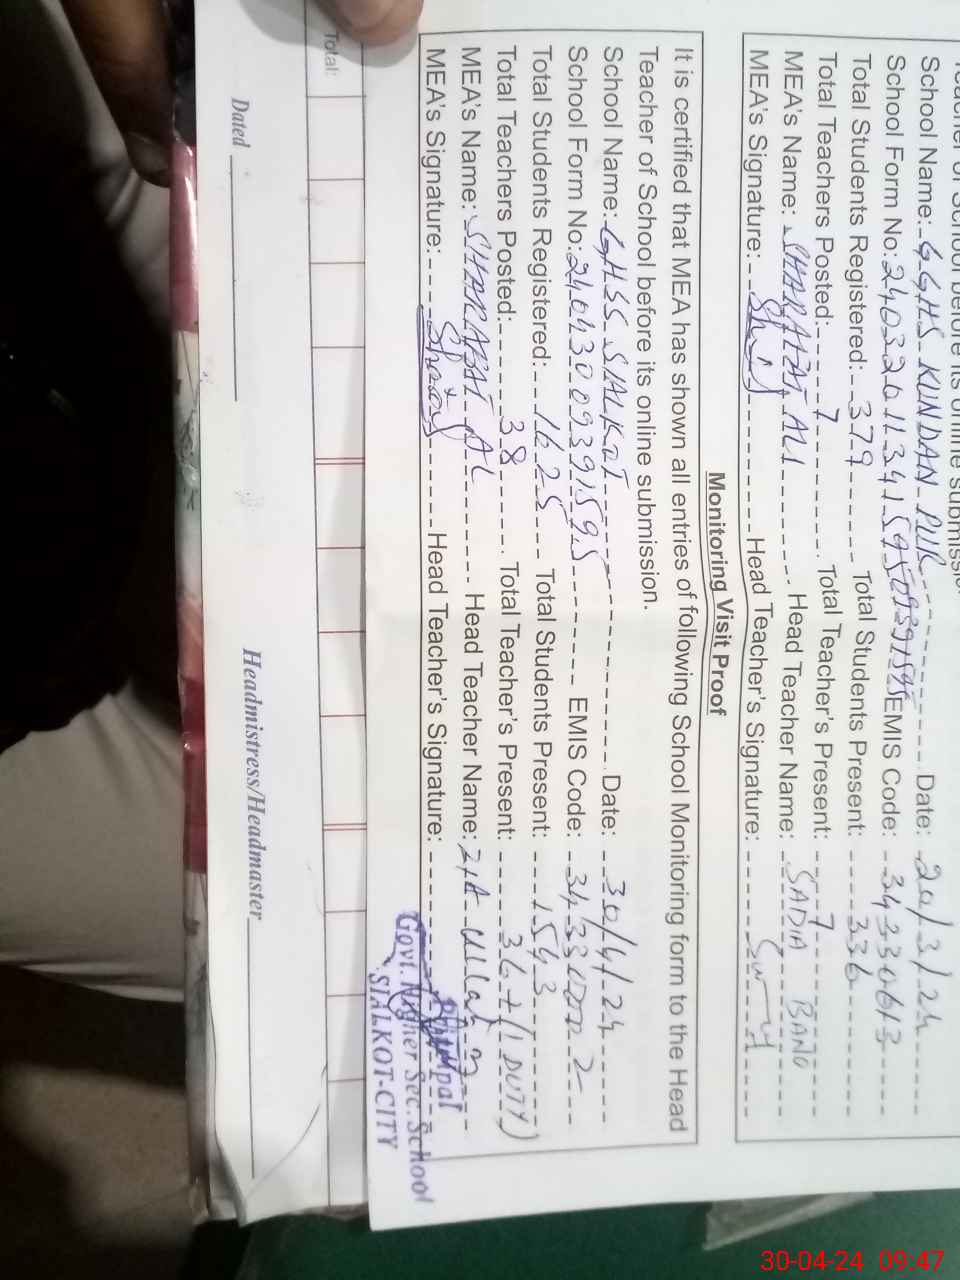 School Name: GGHS KUNDAN PUR Date: 20/3/24
School Form No: EMIS Code: 34330613
Total Students Registered: 379 Total Students Present: 336
Total Teachers Posted: 7 Total Teacher's Present: 7
MEA's Name: SHARAFAT ALI Head Teacher Name: SADIA BANO
MEA's Signature: Head Teacher's Signature:
Monitoring Visit Proof
It is certified that MEA has shown all entries of following School Monitoring form to the Head
Teacher of School before its online submission.
School Name: GHSS SIALKOT Date: 30/4/24
School Form No: 24043009391595 EMIS Code:
Total Students Registered: 1625 Total Students Present: 1543
Total Teachers Posted: 38 Total Teacher's Present: 36+(1 DUTY)
MEA's Name: SHARAFAT AL Head Teacher Name:
MEA's Signature: Head Teacher's Signature:
Principal
Govt. Higher Sec. School
SIALKOT-CITY
Total:
Dated Headmistress/Headmaster
30-04-24 09:47